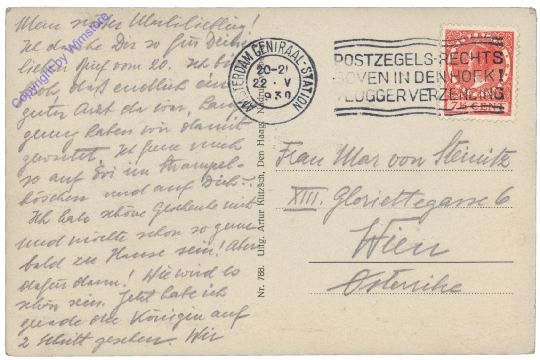 Mein süsser Herzliebling!
Ich danke Dir so für Deinen
lieben Brief vom 20. Ich bin
froh, daß endlich ein
guter Arzt da war, Lang
genug haben wir damit
gewartet. Ich freue mich
so auf Evi im Strampel-
höschen und auf Dich.
Ich habe schöne Geschenke mit
und möchte schon so gerne
bald zu Hause sein! Aber
dafür dann! Wie wird es
schön sein. Jetzt habe ich
gerade die Königin auf
2 Schritt gesehen. Wir
Copyright by Wimstore
Nr. 788. Uitg. Artur Klitzsch, Den Haag,
AMSTERDAM CENTRAAL-STATION
20-21
22 · V
1930
POSTZEGELS RECHTS
BOVEN IN DEN HOEK!
VLUGGER VERZENDING
7½ CENT
Frau Mar von Steinitz
XIII. Gloriettegasse 6
Wien
Österrike